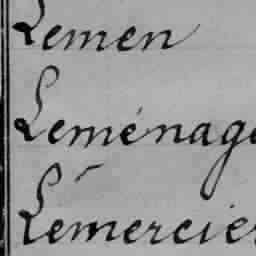 Lemen
Leménage
Lémercier